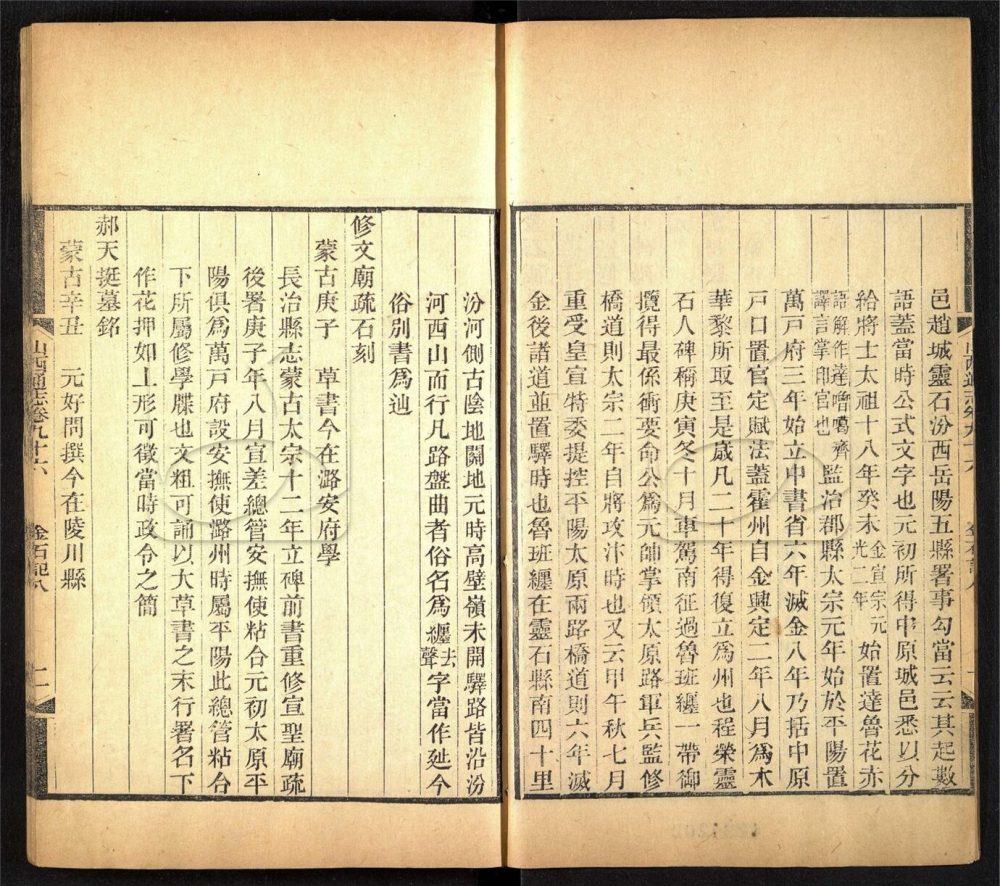 邑趙城靈石汾西岳陽五縣署事勾當云云其起數
語蓋當時公式文字也元初所得中原城邑悉以分
給將士太祖十八年癸未金宣宗元光二年始置達魯花赤
語解作達嚕噶齊譯言掌印官也監治郡縣太宗元年始於平陽置
萬戸府三年始立中書省六年滅金八年乃括中原
戸口置官定賦法蓋霍州自金興定二年八月為木
華黎所取至是歲凡二十年得復立爲州也程榮靈
石人碑稱庚寅冬十月車駕南征過魯班纏一帶御
攬得最係衝要命公爲元帥掌領太原路軍兵監修
橋道則太宗二年自將攻汴時也又云甲午秋七月
重受皇宣特委提控平陽太原兩路橋道則六年滅
金後諸道並置驛時也魯班纏在靈石縣南四十里
汾河側古陰地關地元時高壁嶺未開驛路皆沿汾
河西山而行凡路盤曲者俗名爲纏去聲字當作𨒬今
俗別書爲𨒪
修文廟疏石刻
蒙古庚子 草書今在潞安府學
長治縣志蒙古太宗十二年立碑前書重修宣聖廟疏
後署庚子年八月宣差總管安撫使粘合元初太原平
陽俱爲萬戸府設安撫使潞州時屬平陽此總管粘合
下所屬修學牒也文粗可誦以大草書之末行署名下
作花押如上形可徵當時政令之簡
郝天挺墓銘
蒙古辛丑 元好問撰今在陵川縣
山西通志卷九十六 金石記八 二